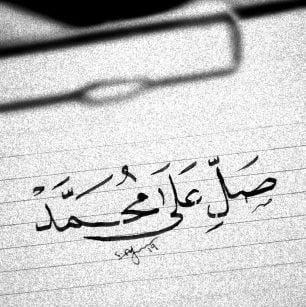 صَلِّ عَلَى مُحَمَّدْ